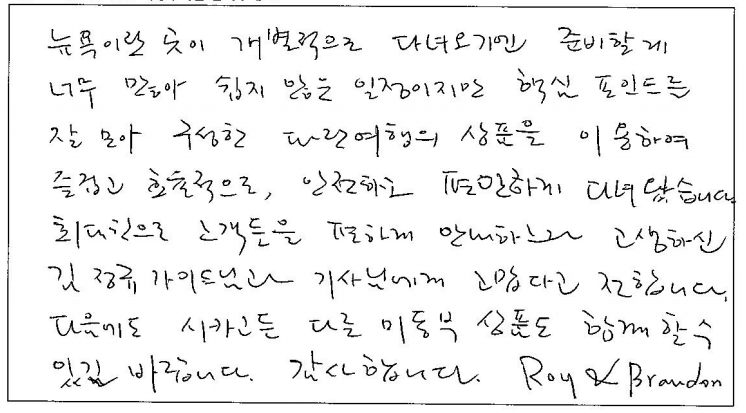 뉴욕이란 곳이 개별적으로 다녀오기엔 준비할게
너무 많아 쉽지 않은 일정이지만 핵심 포인트를
잘 모아 구성한 여행의 상품을 이용하여
즐겁고 효율적으로, 안전하고 편안하게 다녀왔습니다.
최대한으로 고객들을 편하게 안내하느라 고생하신
김 정류 가이드님과 기사님에게 고맙다고 전합니다.
다음에도 시카고든 다른 미동부 상품도 함께 할 수
있길 바랍니다. 감사합니다. Roy & Brandon